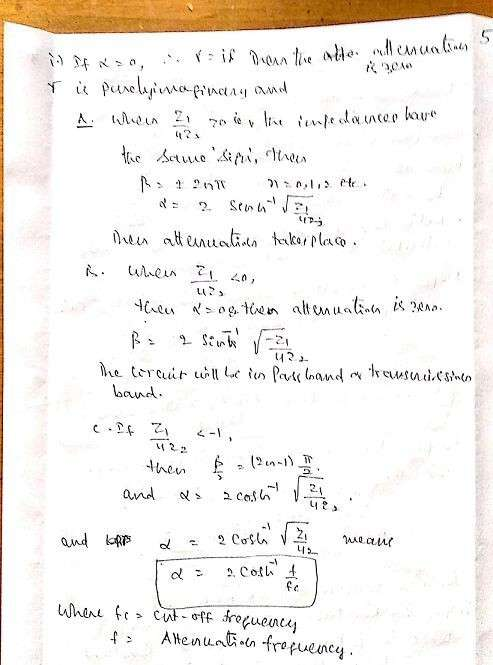 5
i) If α = 0, ∴ γ = iβ Then the attenuation is zero
γ is purely imaginary and
A. when Z1/4Z2 > 0 i.e, the impedances have
the same sign, then
β = ± 2nπ n = 0, 1, 2 etc.
α = 2 Sinh⁻¹ √Z1/4Z2
Then attenuation takes place.
B. when Z1/4Z2 < 0,
then α = 0 & then attenuation is zero.
β = 2 Sin⁻¹ √-Z1/4Z2
The circuit will be in Pass band or transmission
band.
C. If Z1/4Z2 < -1,
then β/2 = (2n-1) π/2.
and α = 2 cosh⁻¹ √Z1/4Z2.
and α = 2 Cosh⁻¹ √Z1/4Z2 means
α = 2 Cosh⁻¹ f/fc
where fc = Cut-off frequency
f = Attenuation frequency.